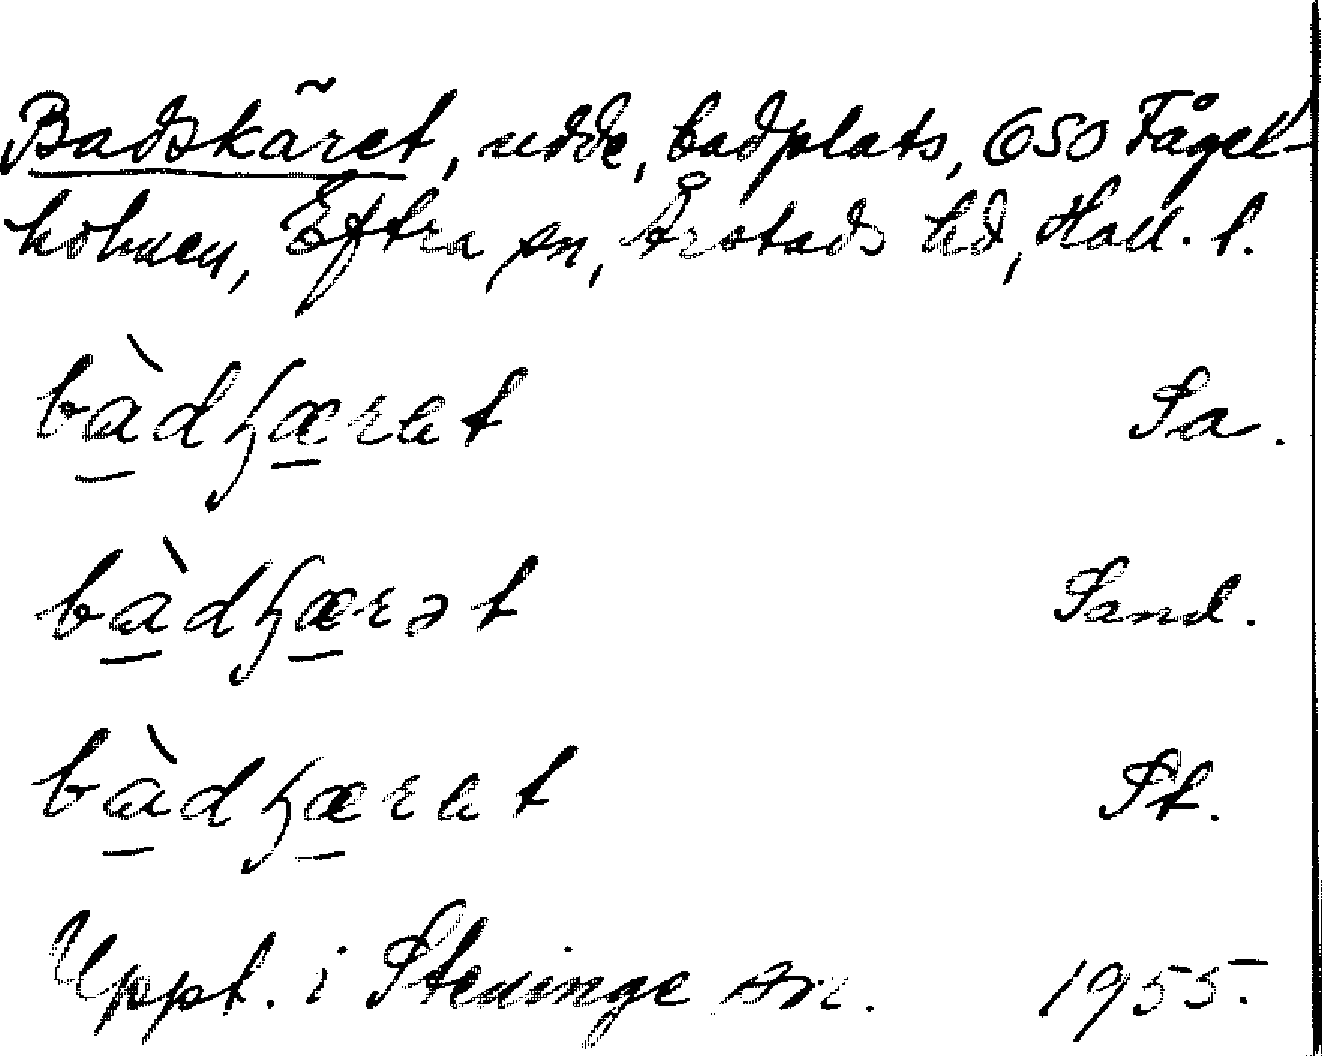 Badskäret, udde, badplats, 650 Fågel-
holmen, Eftra sn, Årstads hd, Hall. l.
bàdʒæret Sa.
bàdʒærət Sand.
bàdʒæret St.
Uppt. i Steninge sn. 1955.